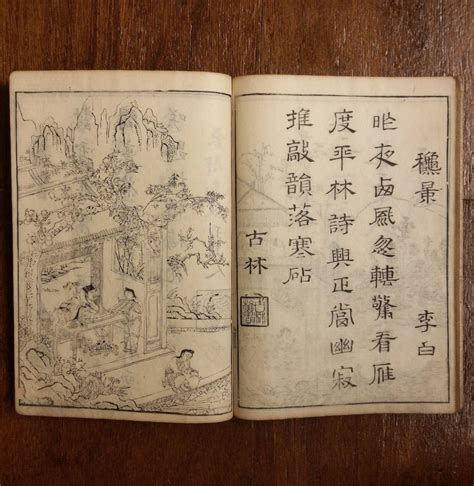 穐景
李白
昨夜卤風忽轉驚看雁
度平林詩興正當幽寂
推敲韻落寒砧
古林